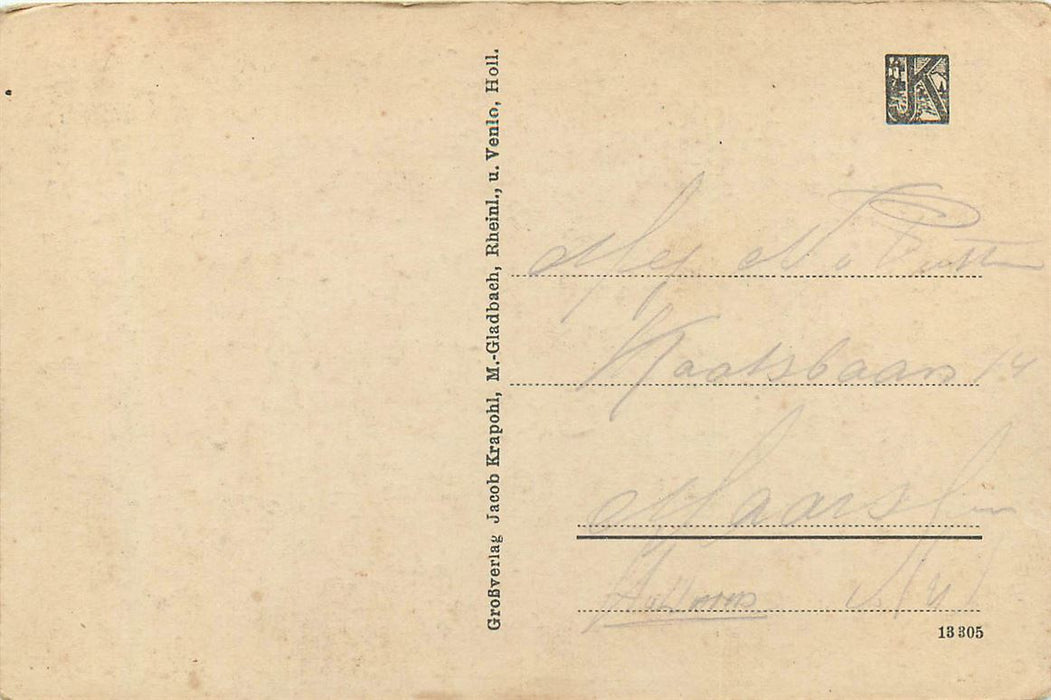 Großverlag Jacob Krapohl, M.-Gladbach, Rheinl., u. Venlo, Holl.
JK
Mej
Kaatsbaan 14
Maarssen
Holland
13 305